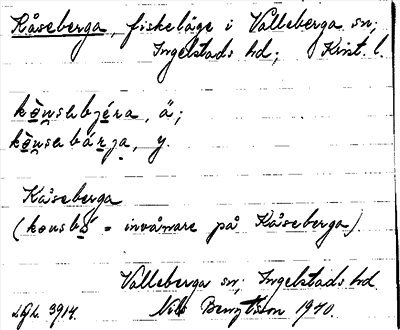 Kåseberga, fiskeläge i Valleberga sn;
Ingelstads hd; Krist. l.
kọ̀u̯sabjéra, ä;
kọ̀u̯sabárja, y.
Kåseberga
(kousbo = invånare på Kåseberga).
Valleberga sn; Ingelstads hd
Nils Bengtsson 1940.
LGL 3914.